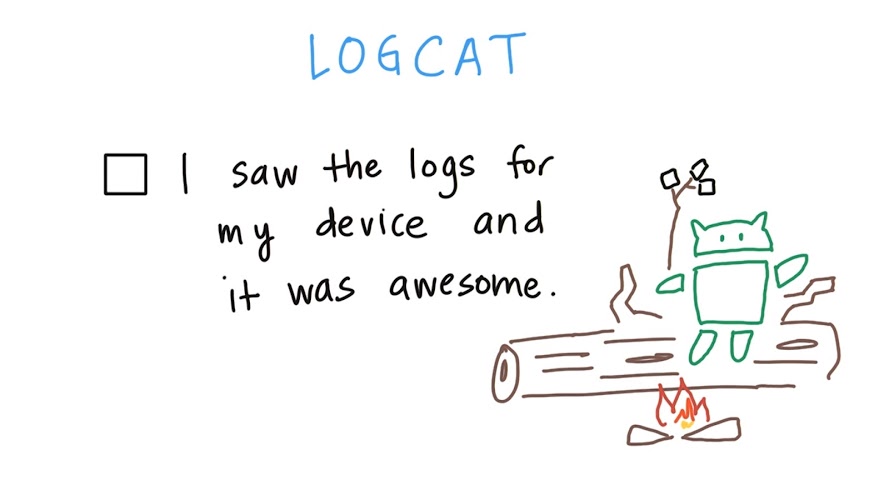 LOGCAT
I saw the logs for
my device and
it was awesome.